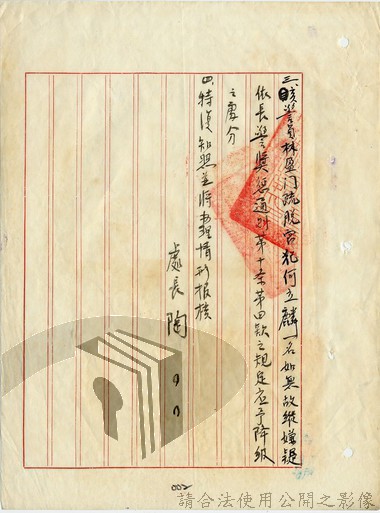 三、該警員林盈門疏脫宕犯何立麟一名如無故縱嫌疑
依長警獎懲通則第十条第四款之規定应予降級
之處分
四、特復知照並將办理情形报核
處長 陶
002
請合法使用公開之影像